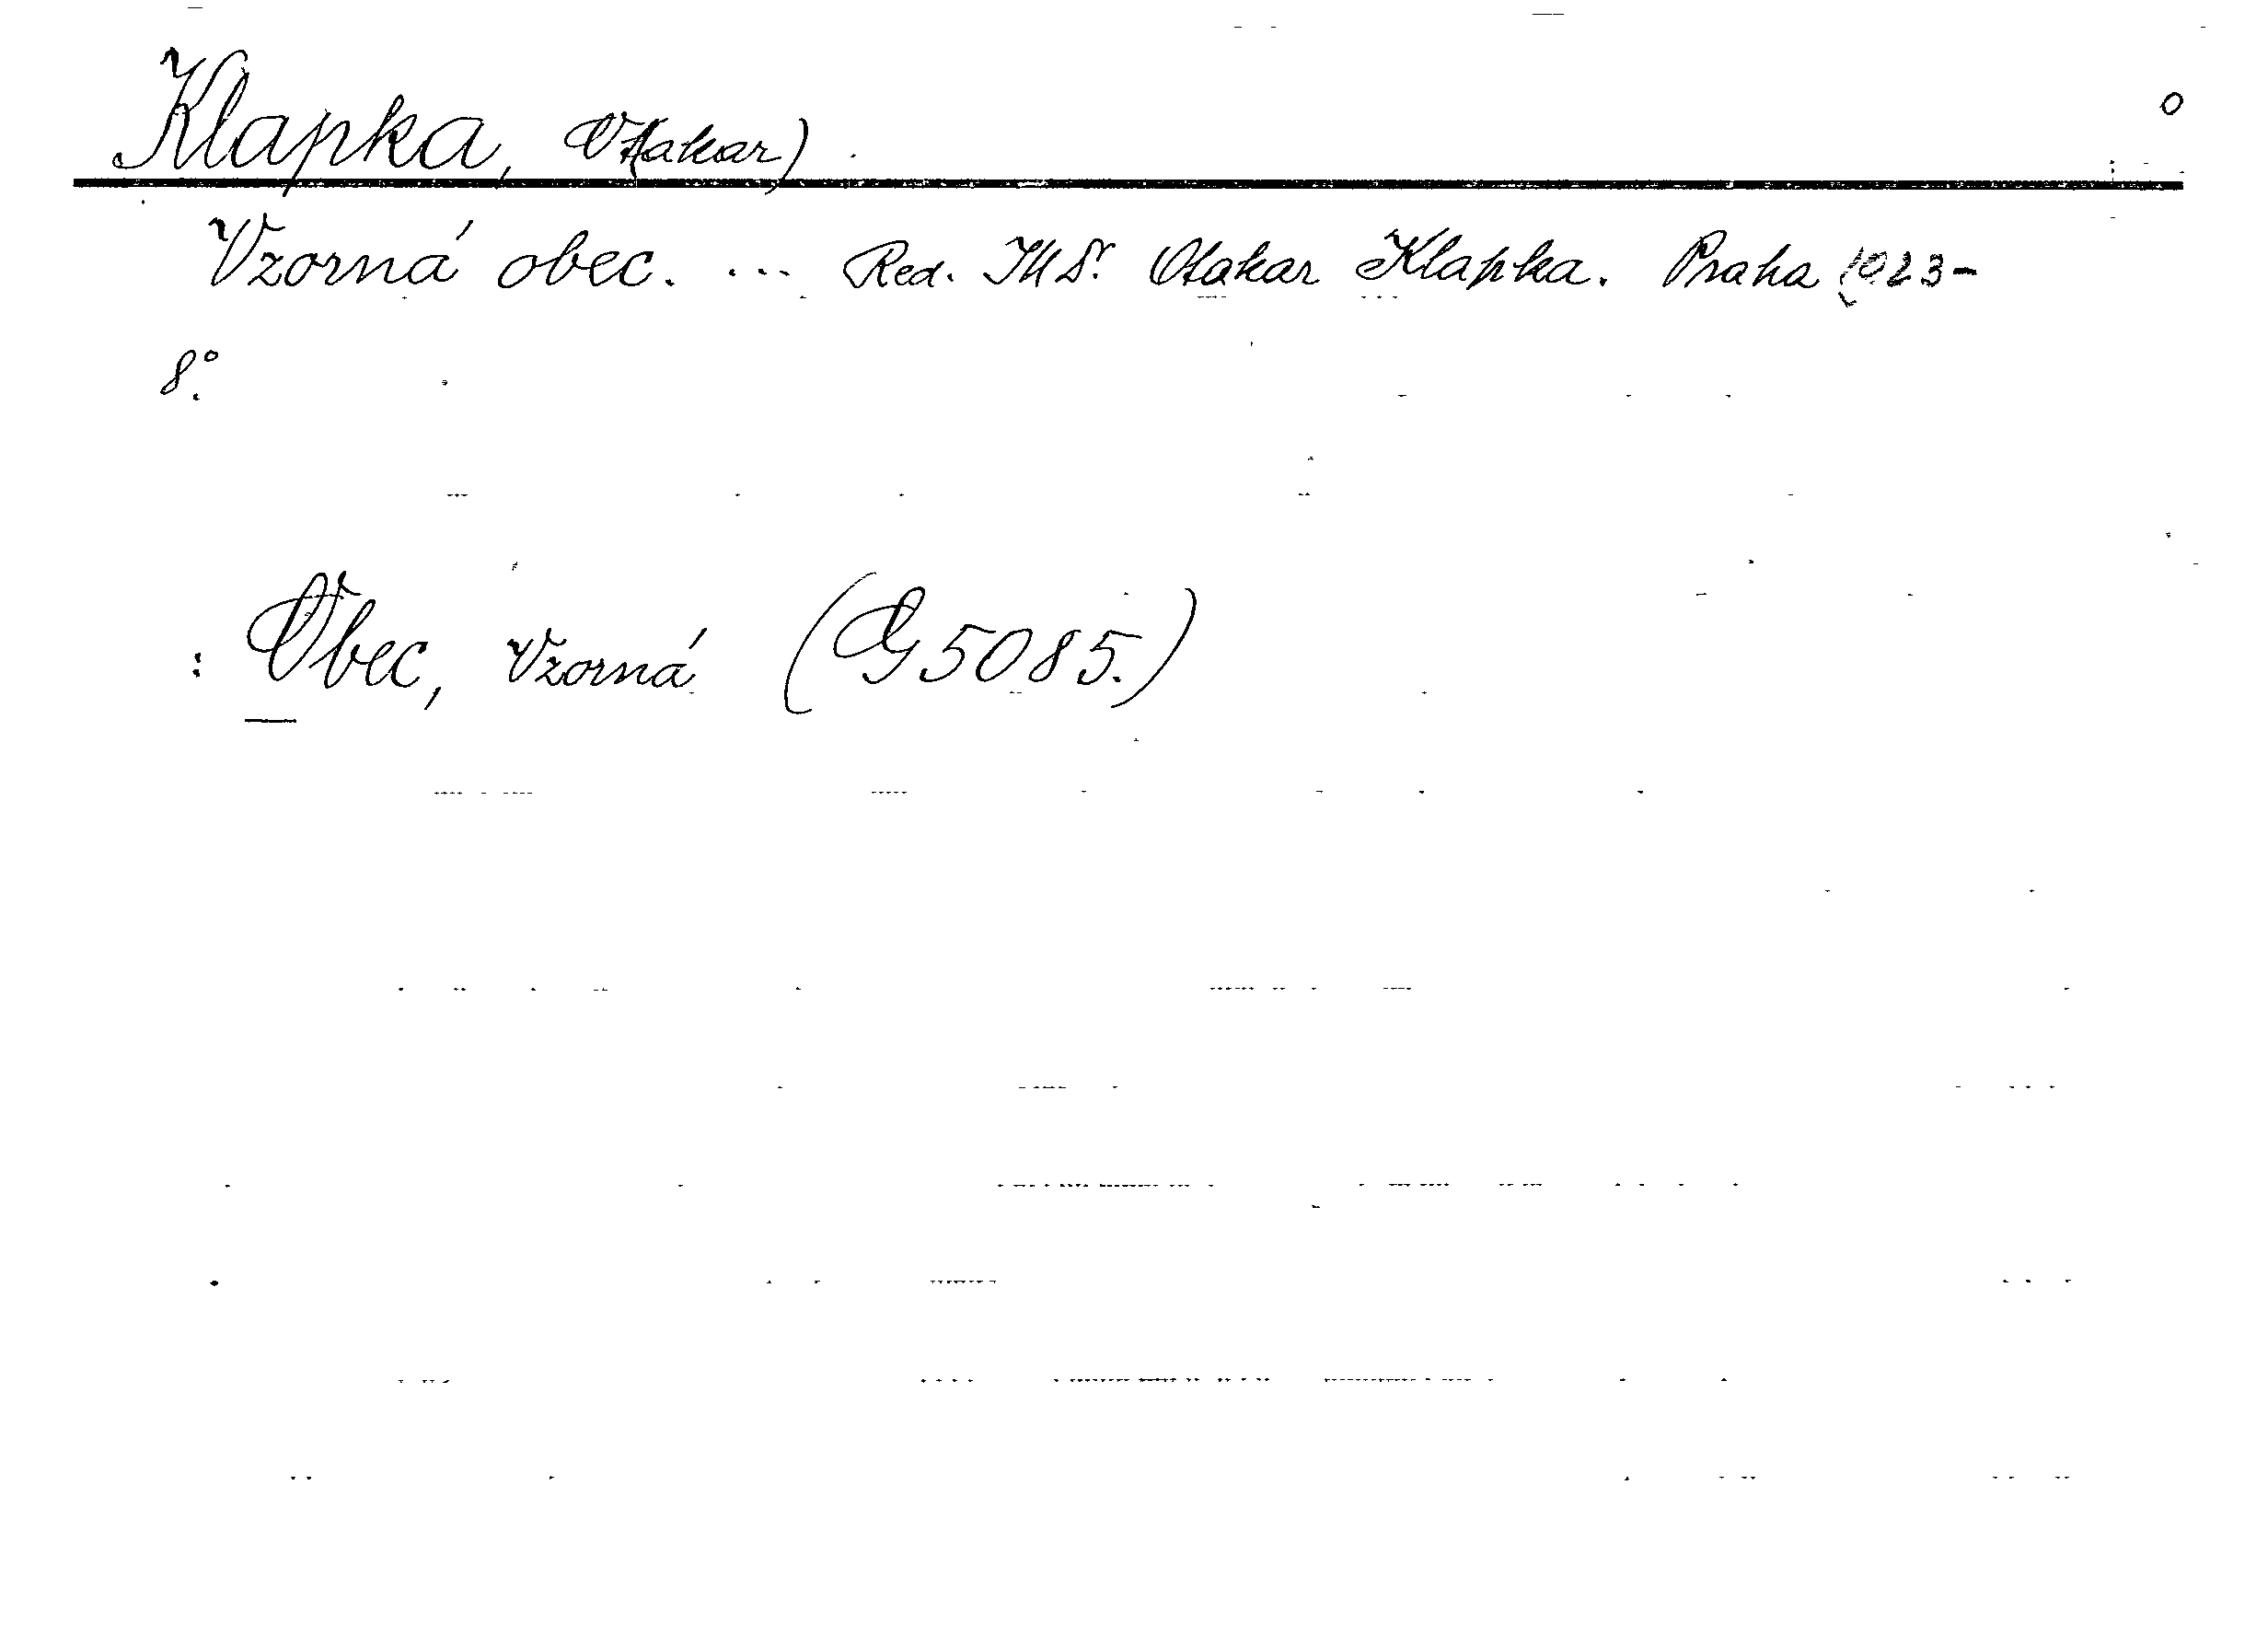 Klapka, O(takar) o
Vzorná obec. ... Red. JUDr. Otakar Klapka. Praha 1923-
8°.
: Obec, vzorná (G 5085.)